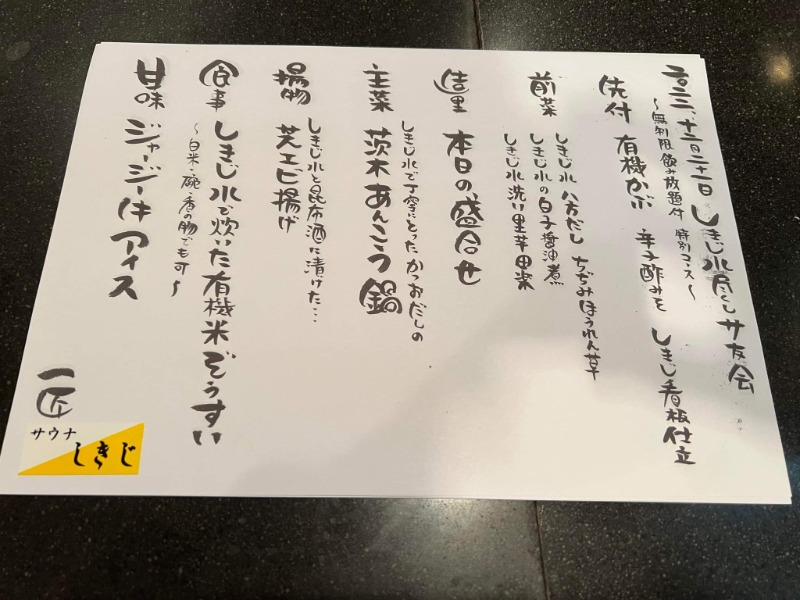 二〇二二、十二月二十二日 しきじ水尽くし サ友会
〜無制限飲み放題付 特別コース〜
先付 有機かぶ 辛子酢みそ しきじ看板仕立
前菜
しきじ水 八方だし ちぢみほうれん草
しきじ水の白子醤油煮
しきじ水洗い里芋田楽
造里 本日の盛合せ
しきじ水で丁寧にとったかつおだしの
主菜 茨木あんこう鍋
しきじ水と昆布酒に漬けた…
揚物 芝エビ揚げ
食事 しきじ水で炊いた有機米ぞうすい
〜白米・碗・香の物でも可〜
甘味 ジャージー牛アイス
匠
サウナ
しきじ